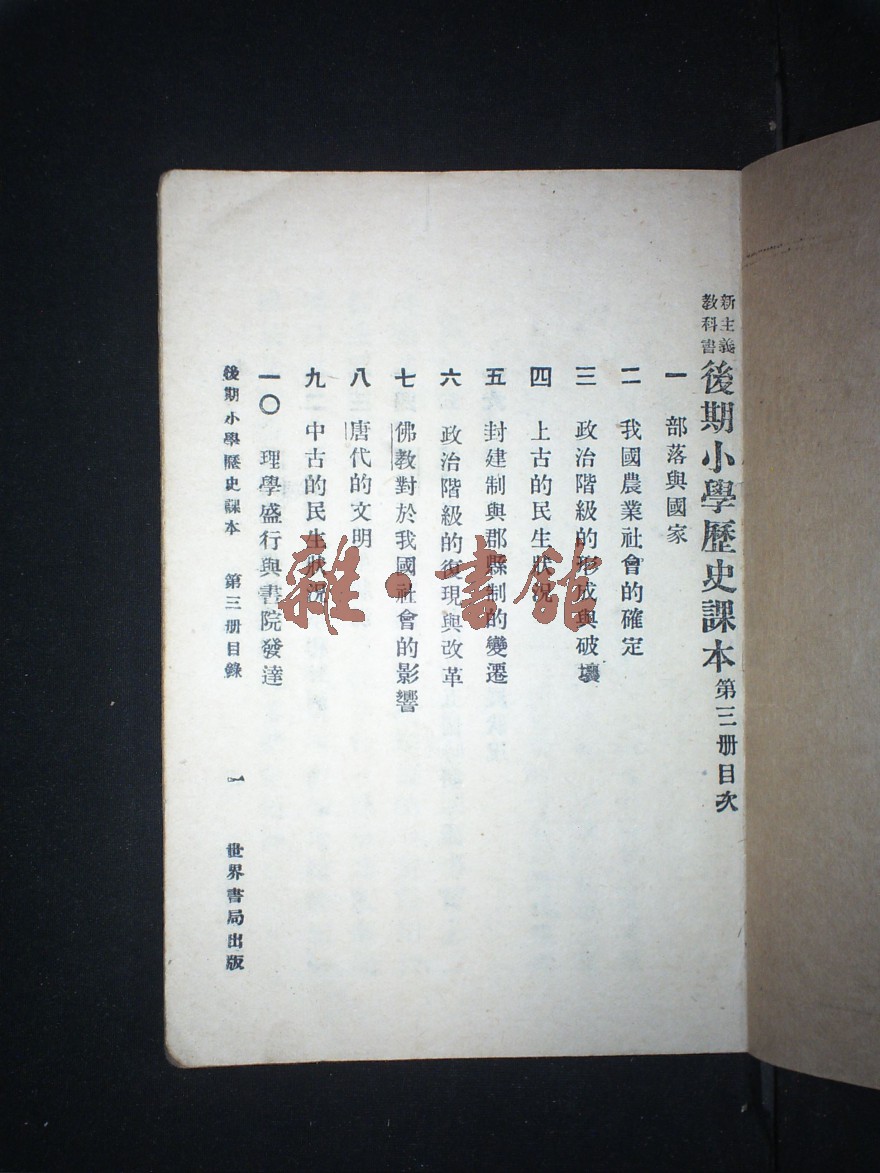 新主義
教科書
後期小學歷史課本第三册目次
一 部落與國家
二 我國農業社會的確定
三 政治階級的形成與破壞
四 上古的民生狀況
五 封建制與郡縣制的變遷
六 政治階級的復現與改革
七 佛教對於我國社會的影響
八 唐代的文明
九 中古的民生狀況
一〇 理學盛行與書院發達
後期小學歷史課本 第三册目錄 一 世界書局出版
雜·書館